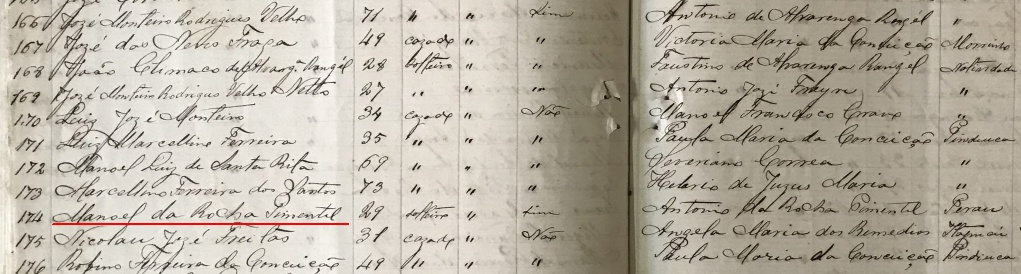 166 Jozé Monteiro Rodrigues Velho 71 " Sim Antonio de Alvarenga Rangél "
167 Jozé das Neves Fraga 49 cazado " " Victoria Maria da Conceição Morinho
168 João Climaco de Alvargª Rangél 28 solteiro " " Faustino de Alvarenga Rangel Natividade
169 Jozé Monteiro Rodrigues Velho Netto 27 " " " Antonio Jozé Frayre "
170 Luiz Jozé Monteiro 34 cazado " Não Manoel Francisco "
171 Luiz Marcellino Ferreira 35 " " " Paula Maria da Conceição Pinduuca
172 Manoel Luiz de Santa Rita 69 " " " Severiano Correa "
173 Marcellino Ferreira dos Santos 73 " " " Helario de Jezus Maria "
174 Manoel da Rocha Pimentel 29 solteiro " Sim Antonio da Rocha Pimentel Perau
175 Nicolau Jozé Freitas 31 cazado " Não Angela Maria dos Remedios
176 Ferreira da Conceição 49 " " " Paula Maria da Conceição